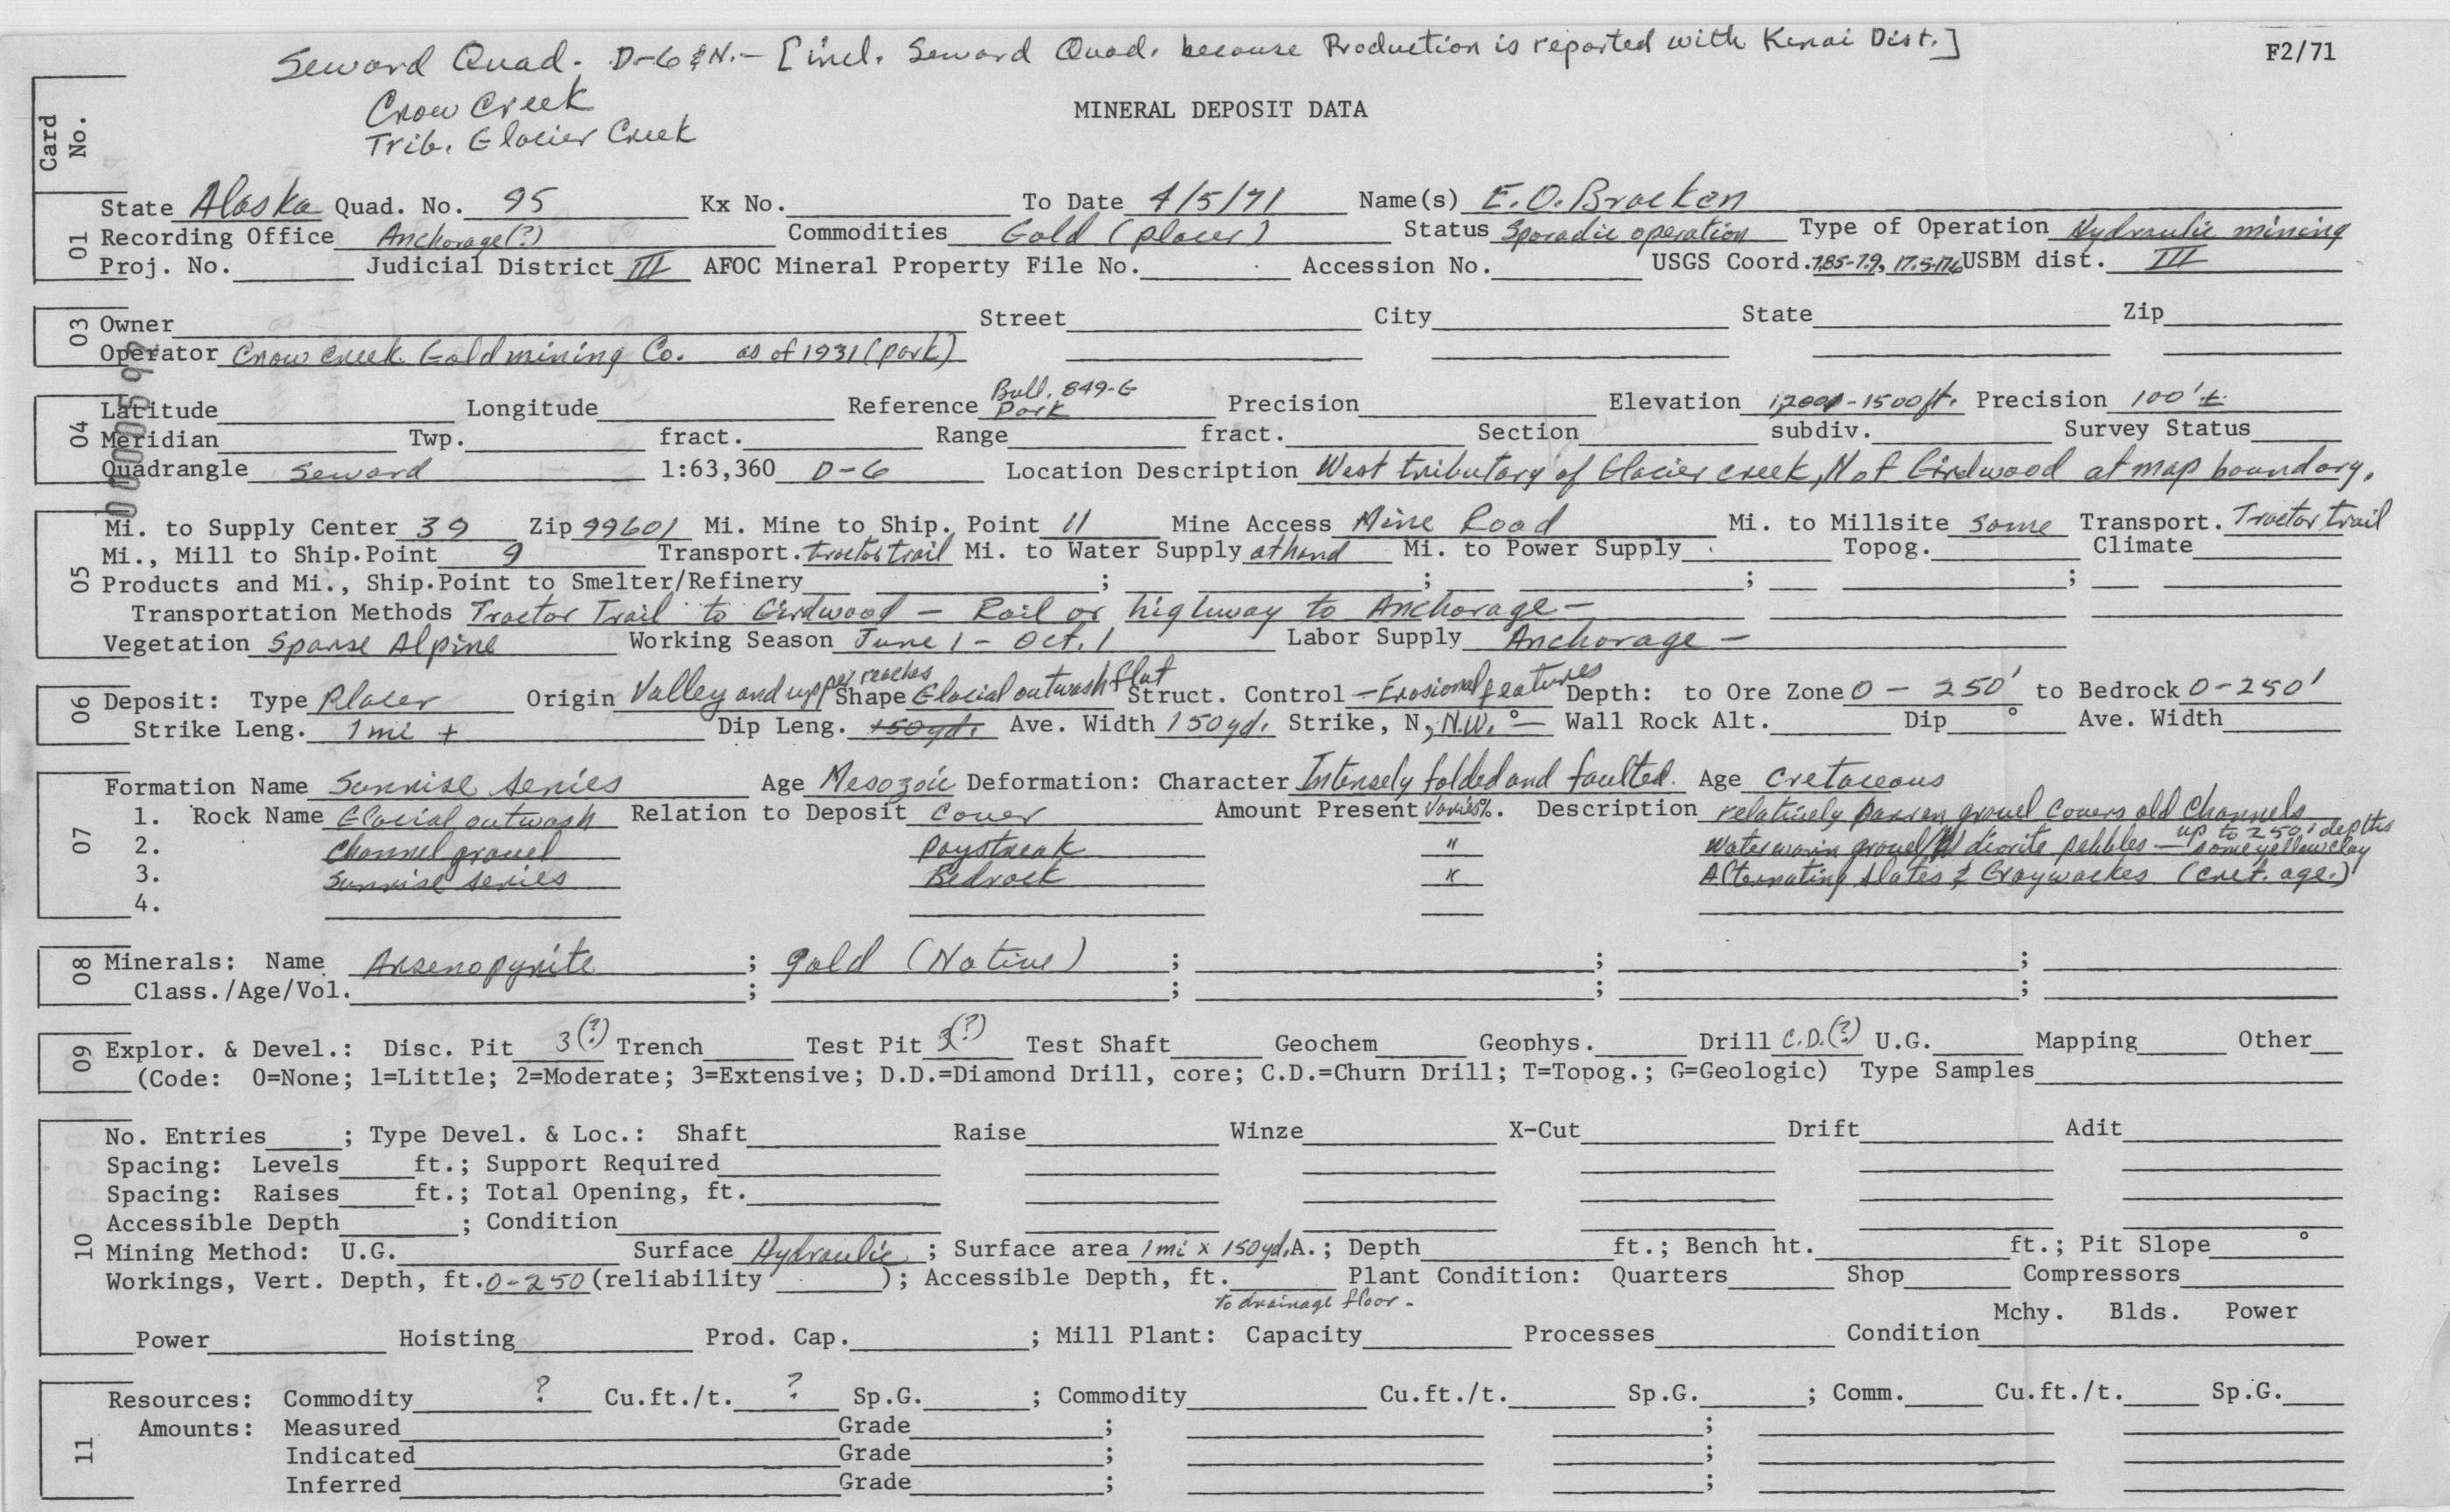 Seward Quad. D-6 & N. - [incl. Seward Quad. because Production is reported with Kenai Dist.]
F2/71
Crow Creek
Trib. Glacier Creek
MINERAL DEPOSIT DATA
Card No.
01
State Alaska Quad. No. 95 Kx No. To Date 4/5/71 Name(s) E.O. Bracken
Recording Office Anchorage(?) Commodities Gold (placer) Status Sporadic operation Type of Operation Hydraulic mining
Proj. No. Judicial District III AFOC Mineral Property File No. Accession No. USGS Coord. USBM dist. III
03
Owner Street City State Zip
Operator Crow Creek Gold mining Co. as of 1931 (park)
04
Bull. 849-G
Latitude Longitude Reference Park Precision Elevation Precision 100'±
Meridian Twp. fract. Range fract. Section subdiv. Survey Status
Quadrangle Seward 1:63,360 D-6 Location Description West tributary of Glacier creek, N of Girdwood at map boundary.
05
Mi. to Supply Center 39 Zip 99601 Mi. Mine to Ship. Point 11 Mine Access Mine Road Mi. to Millsite same Transport. Tractor trail
Mi., Mill to Ship.Point 9 Transport. tractor trail Mi. to Water Supply at hand Mi. to Power Supply Topog. Climate
Products and Mi., Ship.Point to Smelter/Refinery ; ; ; ;
Transportation Methods Tractor Trail to Girdwood - Rail or highway to Anchorage -
Vegetation Sparse Alpine Working Season June 1 - Oct. 1 Labor Supply Anchorage -
06
Deposit: Type Placer Origin Valley and upper reaches Shape Glacial outwash flat Struct. Control - Erosional features Depth: to Ore Zone 0 - 250' to Bedrock 0-250'
Strike Leng. 1 mi + Dip Leng. 150yd. Ave. Width 150yd. Strike, N, N.W. ° - Wall Rock Alt. Dip ° Ave. Width
07
Formation Name Sunrise series Age Mesozoic Deformation: Character Intensely folded and faulted. Age Cretaceous
1. Rock Name Glacial outwash Relation to Deposit Cover Amount Present Varies%. Description relatively barren gravel covers old Channels up to 250' depths
2. Channel gravel Paystreak " Waterworn gravel diorite pebbles - some yellow clay
3. Sunrise series Bedrock " Alternating slates & Graywackes (cret. age.)
4.
08
Minerals: Name Arsenopyrite ; gold (Native) ; ; ;
Class./Age/Vol. ; ; ; ;
09
Explor. & Devel.: Disc. Pit 3(?) Trench Test Pit 3(?) Test Shaft Geochem Geophys. Drill C.D.(?) U.G. Mapping Other
(Code: 0=None; 1=Little; 2=Moderate; 3=Extensive; D.D.=Diamond Drill, core; C.D.=Churn Drill; T=Topog.; G=Geologic) Type Samples
10
No. Entries ; Type Devel. & Loc.: Shaft Raise Winze X-Cut Drift Adit
Spacing: Levels ft.; Support Required
Spacing: Raises ft.; Total Opening, ft.
Accessible Depth ; Condition
Mining Method: U.G. Surface Hydraulic ; Surface area 1mi x 150yd.A.; Depth ft.; Bench ht. ft.; Pit Slope °
Workings, Vert. Depth, ft. 0-250 (reliability ); Accessible Depth, ft. Plant Condition: Quarters Shop Compressors
to drainage floor -
Mchy. Blds. Power
Power Hoisting Prod. Cap. ; Mill Plant: Capacity Processes Condition
11
Resources: Commodity ? Cu.ft./t. ? Sp.G. ; Commodity Cu.ft./t. Sp.G. ; Comm. Cu.ft./t. Sp.G.
Amounts: Measured Grade ; ;
Indicated Grade ; ;
Inferred Grade ; ;